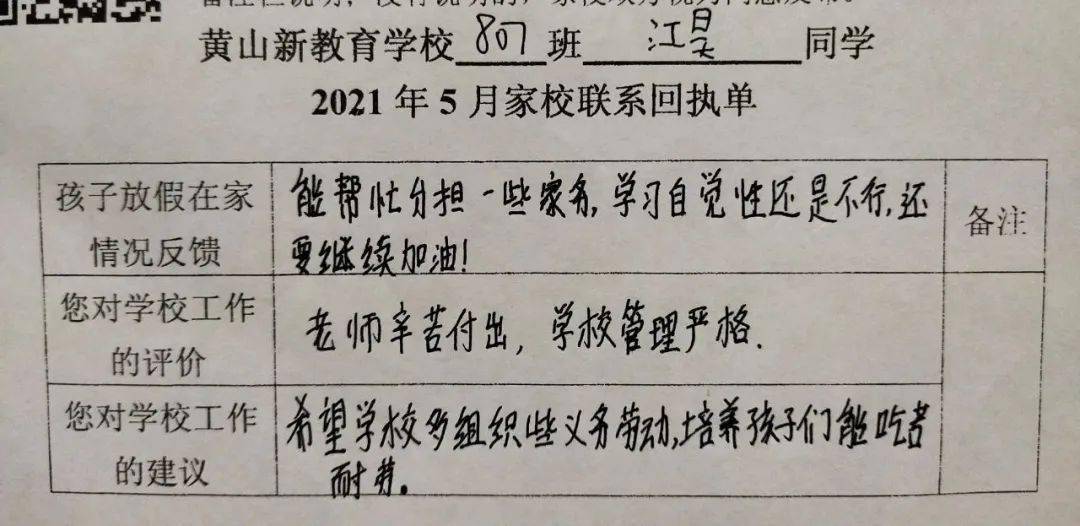 备注栏说明，没有说明的，家校联办视为同意发布。
黄山新教育学校 807 班 江昊 同学
2021 年 5 月家校联系回执单
孩子放假在家 能帮忙分担一些家务,学习自觉性还是不行,还 备注
情况反馈 要继续加油!
您对学校工作 老师辛苦付出, 学校管理严格.
的评价
您对学校工作 希望学校多组织些义务劳动,培养孩子们能吃苦
的建议 耐劳.